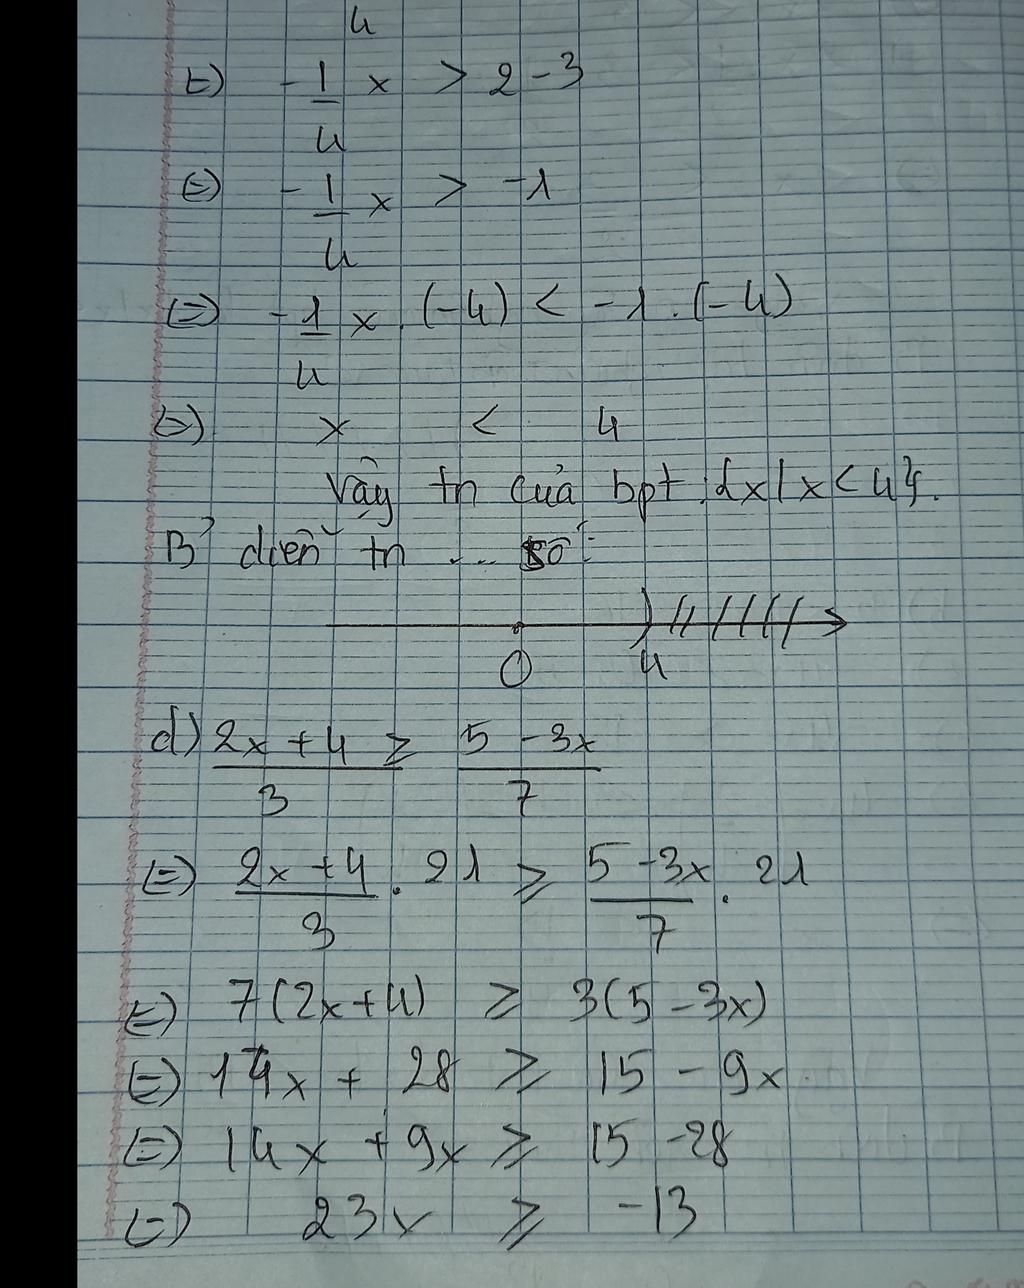 4
⇔ -1/4 x > 2 - 3
⇔ -1/4 x > -1
⇔ -1/4 x . (-4) < -1 . (-4)
⇔ x < 4
Vậy tn của bpt : {x | x < 4}.
B' diễn tn ... số :
0 4
d) 2x + 4 / 3 ≥ 5 - 3x / 7
⇔ 2x + 4 / 3 . 21 ≥ 5 - 3x / 7 . 21
⇔ 7(2x + 4) ≥ 3(5 - 3x)
⇔ 14x + 28 ≥ 15 - 9x
⇔ 14x + 9x ≥ 15 - 28
⇔ 23x ≥ -13